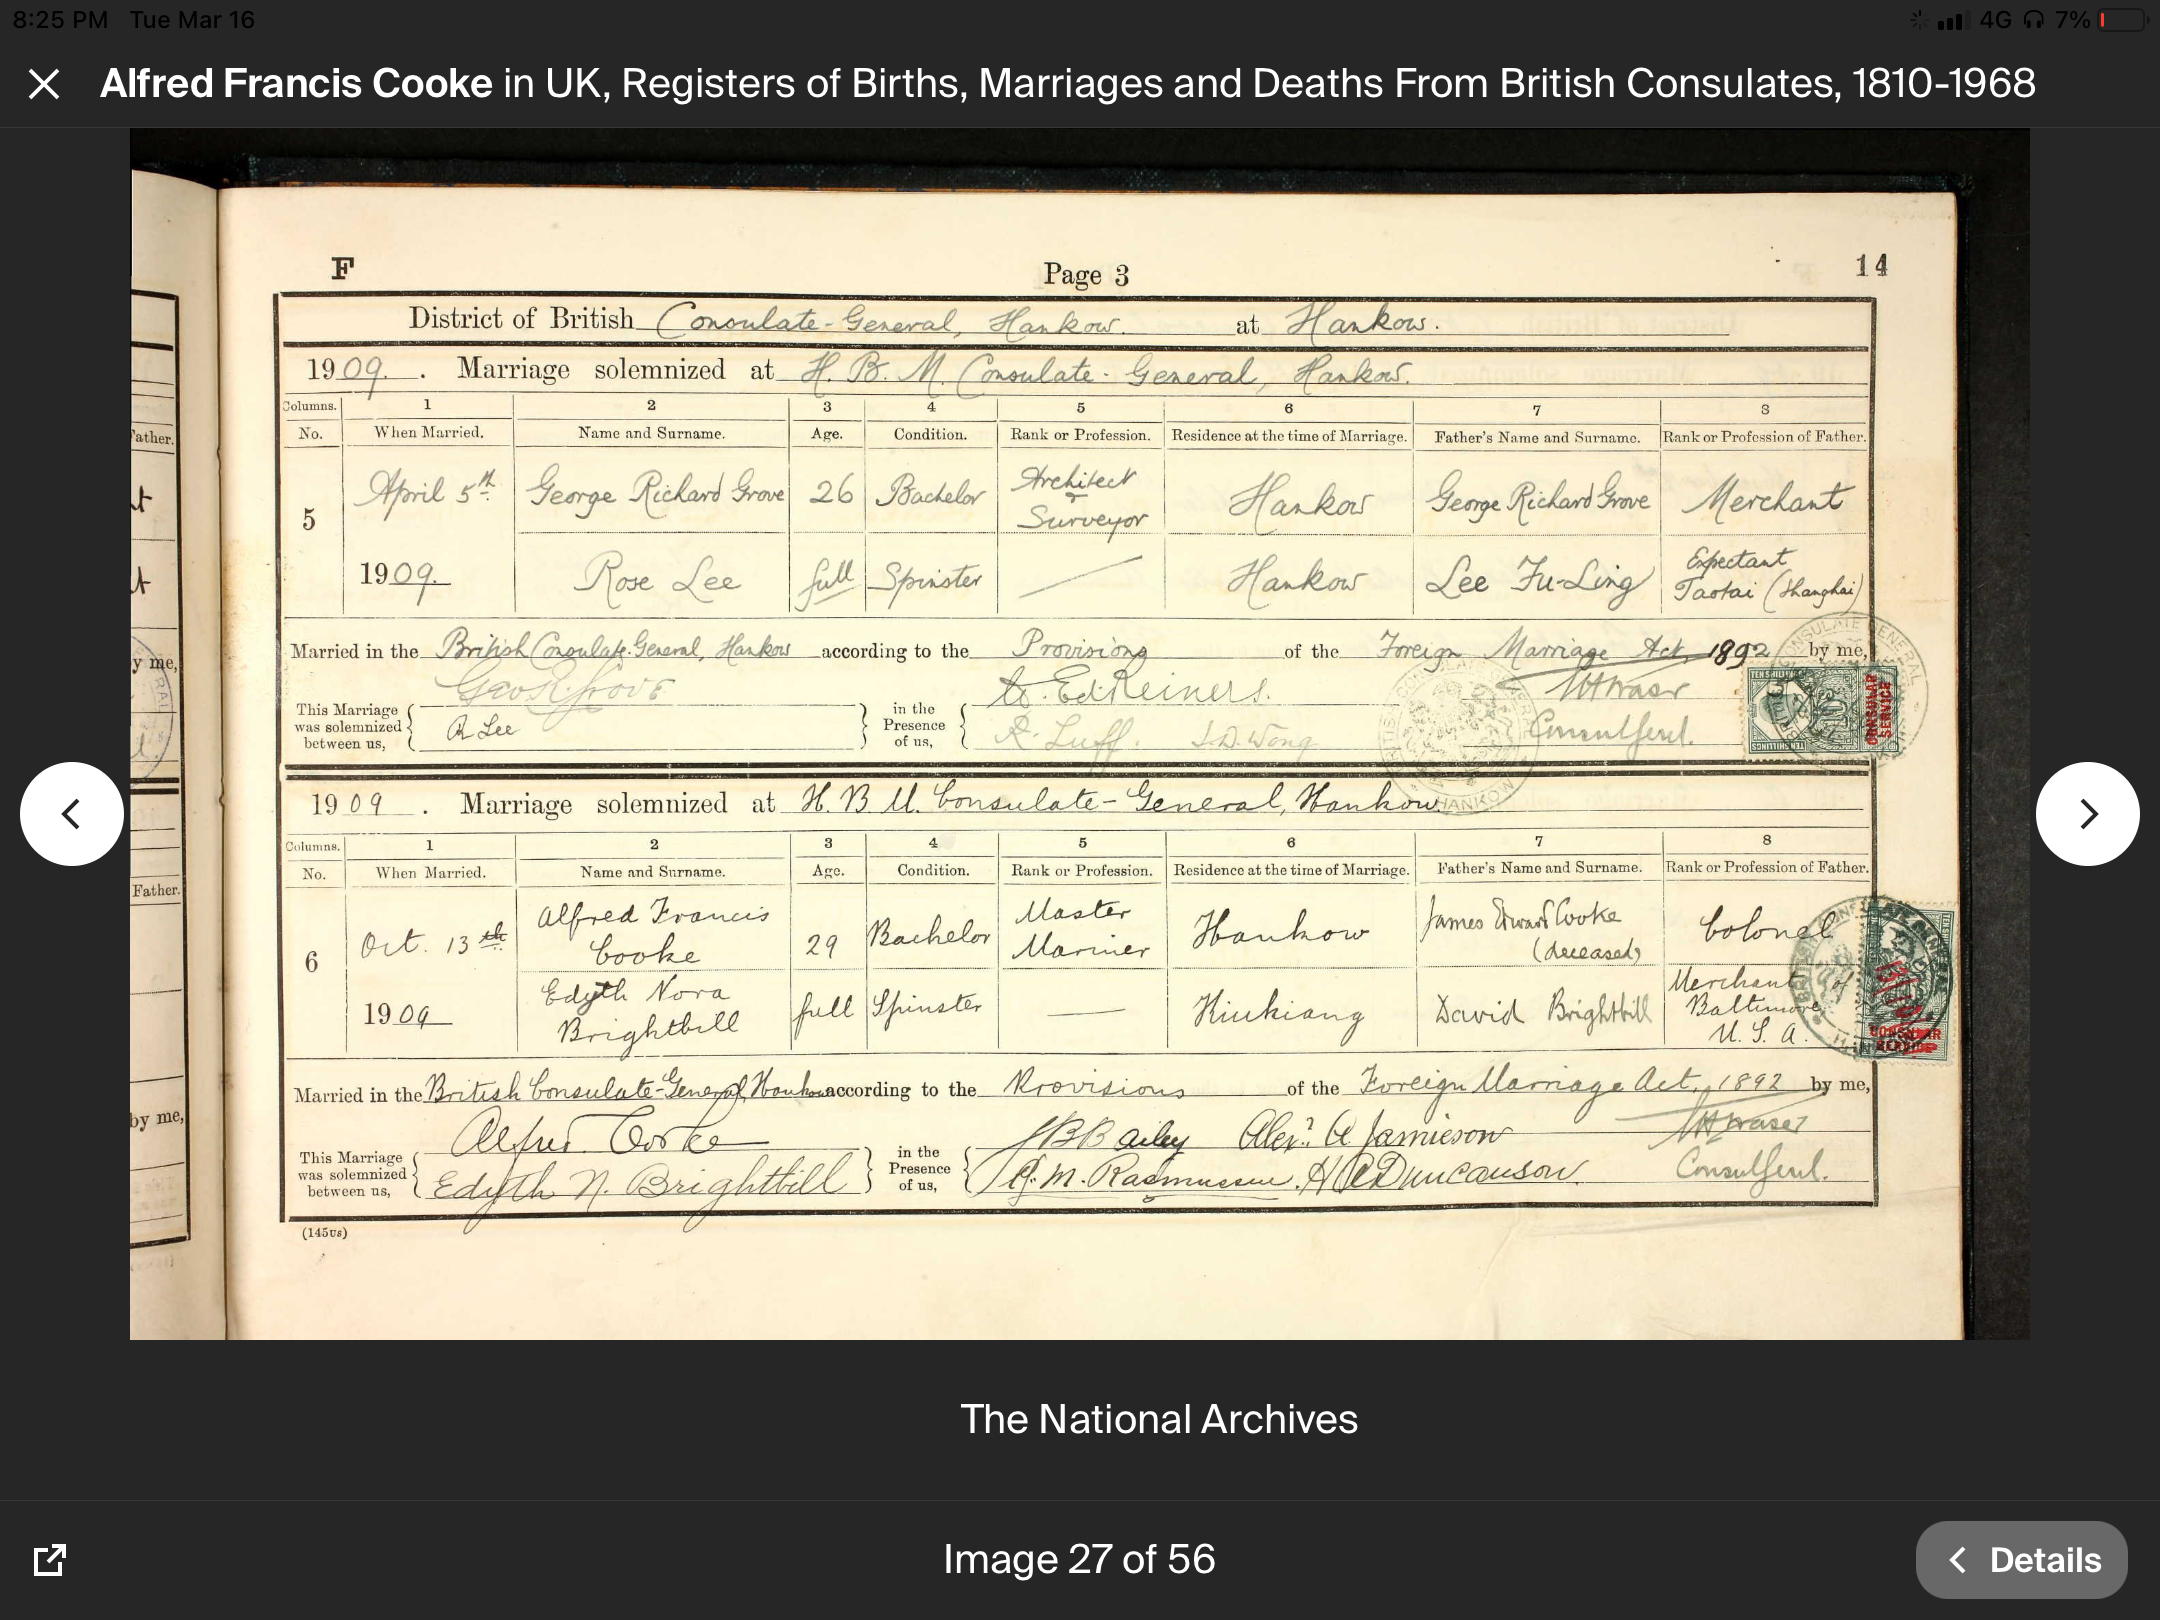 8:25 PM Tue Mar 16
4G 7%
Alfred Francis Cooke in UK, Registers of Births, Marriages and Deaths From British Consulates, 1810-1968
F
Page 3
14
District of British Consulate-General, Hankow. at Hankow.
1909. Marriage solemnized at H. B. M. Consulate-General, Hankow.
Columns. 1 2 3 4 5 6 7 8
No. When Married. Name and Surname. Age. Condition. Rank or Profession. Residence at the time of Marriage. Father's Name and Surname. Rank or Profession of Father.
5 April 5th George Richard Grove 26 Bachelor Architect & Surveyor Hankow George Richard Grove Merchant
1909. Rose Lee full Spinster — Hankow Lee Fu-Ling Expectant Taotai (Shanghai)
Married in the British Consulate-General, Hankow according to the Provisions of the Foreign Marriage Act, 1892 by me,
This Marriage was solemnized between us, Geo R. Grove
R Lee
in the Presence of us, Ed. Reiners.
R. Luff. J. D. Wong
Consul Genl.
CONSULATE GENERAL
HANKOW
TEN SHILLINGS
CONSULAR SERVICE
1909. Marriage solemnized at H. B. M. Consulate-General, Hankow.
Columns. 1 2 3 4 5 6 7 8
No. When Married. Name and Surname. Age. Condition. Rank or Profession. Residence at the time of Marriage. Father's Name and Surname. Rank or Profession of Father.
6 Oct. 13th Alfred Francis Cooke 29 Bachelor Master Mariner Hankow James Edward Cooke (deceased) Colonel
1909 Edyth Nora Brightbill full Spinster — Kiukiang David Brightbill Merchant of Baltimore, U. S. A.
Married in the British Consulate-General, Hankow according to the Provisions of the Foreign Marriage Act, 1892 by me,
This Marriage was solemnized between us, Alfred Cooke
Edyth N. Brightbill
in the Presence of us, J B Bailey Alexr. A Jamieson
M. Rasmussen. Duncanson.
Fraser
Consul Genl.
(145us)
Father.
y me,
Father.
by me,
The National Archives
Image 27 of 56
Details